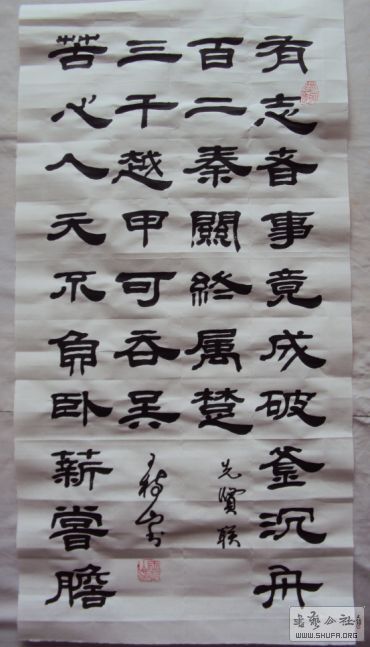 有志者事竟成破釜沉舟
百二秦關終属楚
先賢联
苦心人天不負卧薪嘗膽
三千越甲可吞吴
書藝公社
WWW.SHUFA.ORG